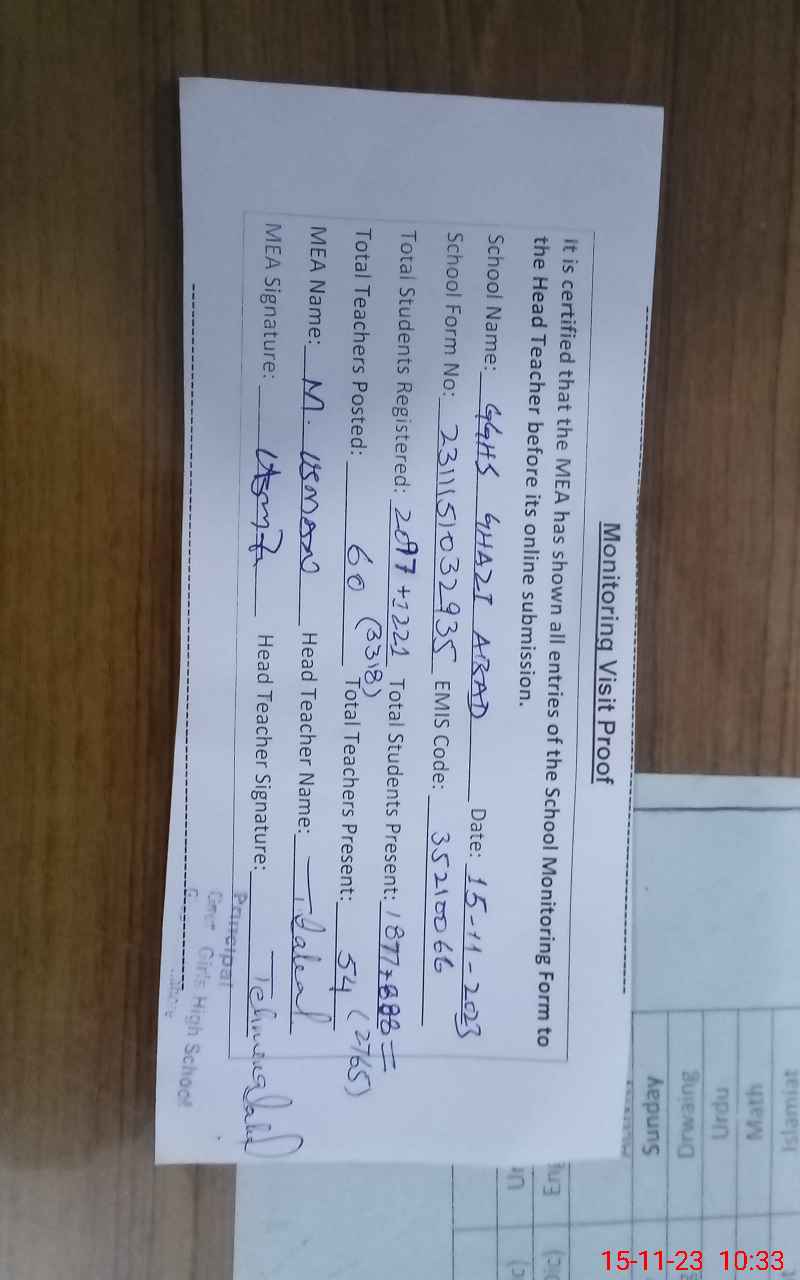 Monitoring Visit Proof
It is certified that the MEA has shown all entries of the School Monitoring Form to
the Head Teacher before its online submission.
School Name: GGHS GHAZI ABAD Date: 15-11-2023
School Form No: 2311151032935 EMIS Code: 35210066
Total Students Registered: 2097+1221 Total Students Present: 1877+888=
(3318) (2765)
Total Teachers Posted: 60 Total Teachers Present: 54
MEA Name: M. USMAN Head Teacher Name: T.
MEA Signature: Head Teacher Signature:
Principal
Girls High School
Islamiat
Math
Urdu
Drawing
Sunday
15-11-23 10:33